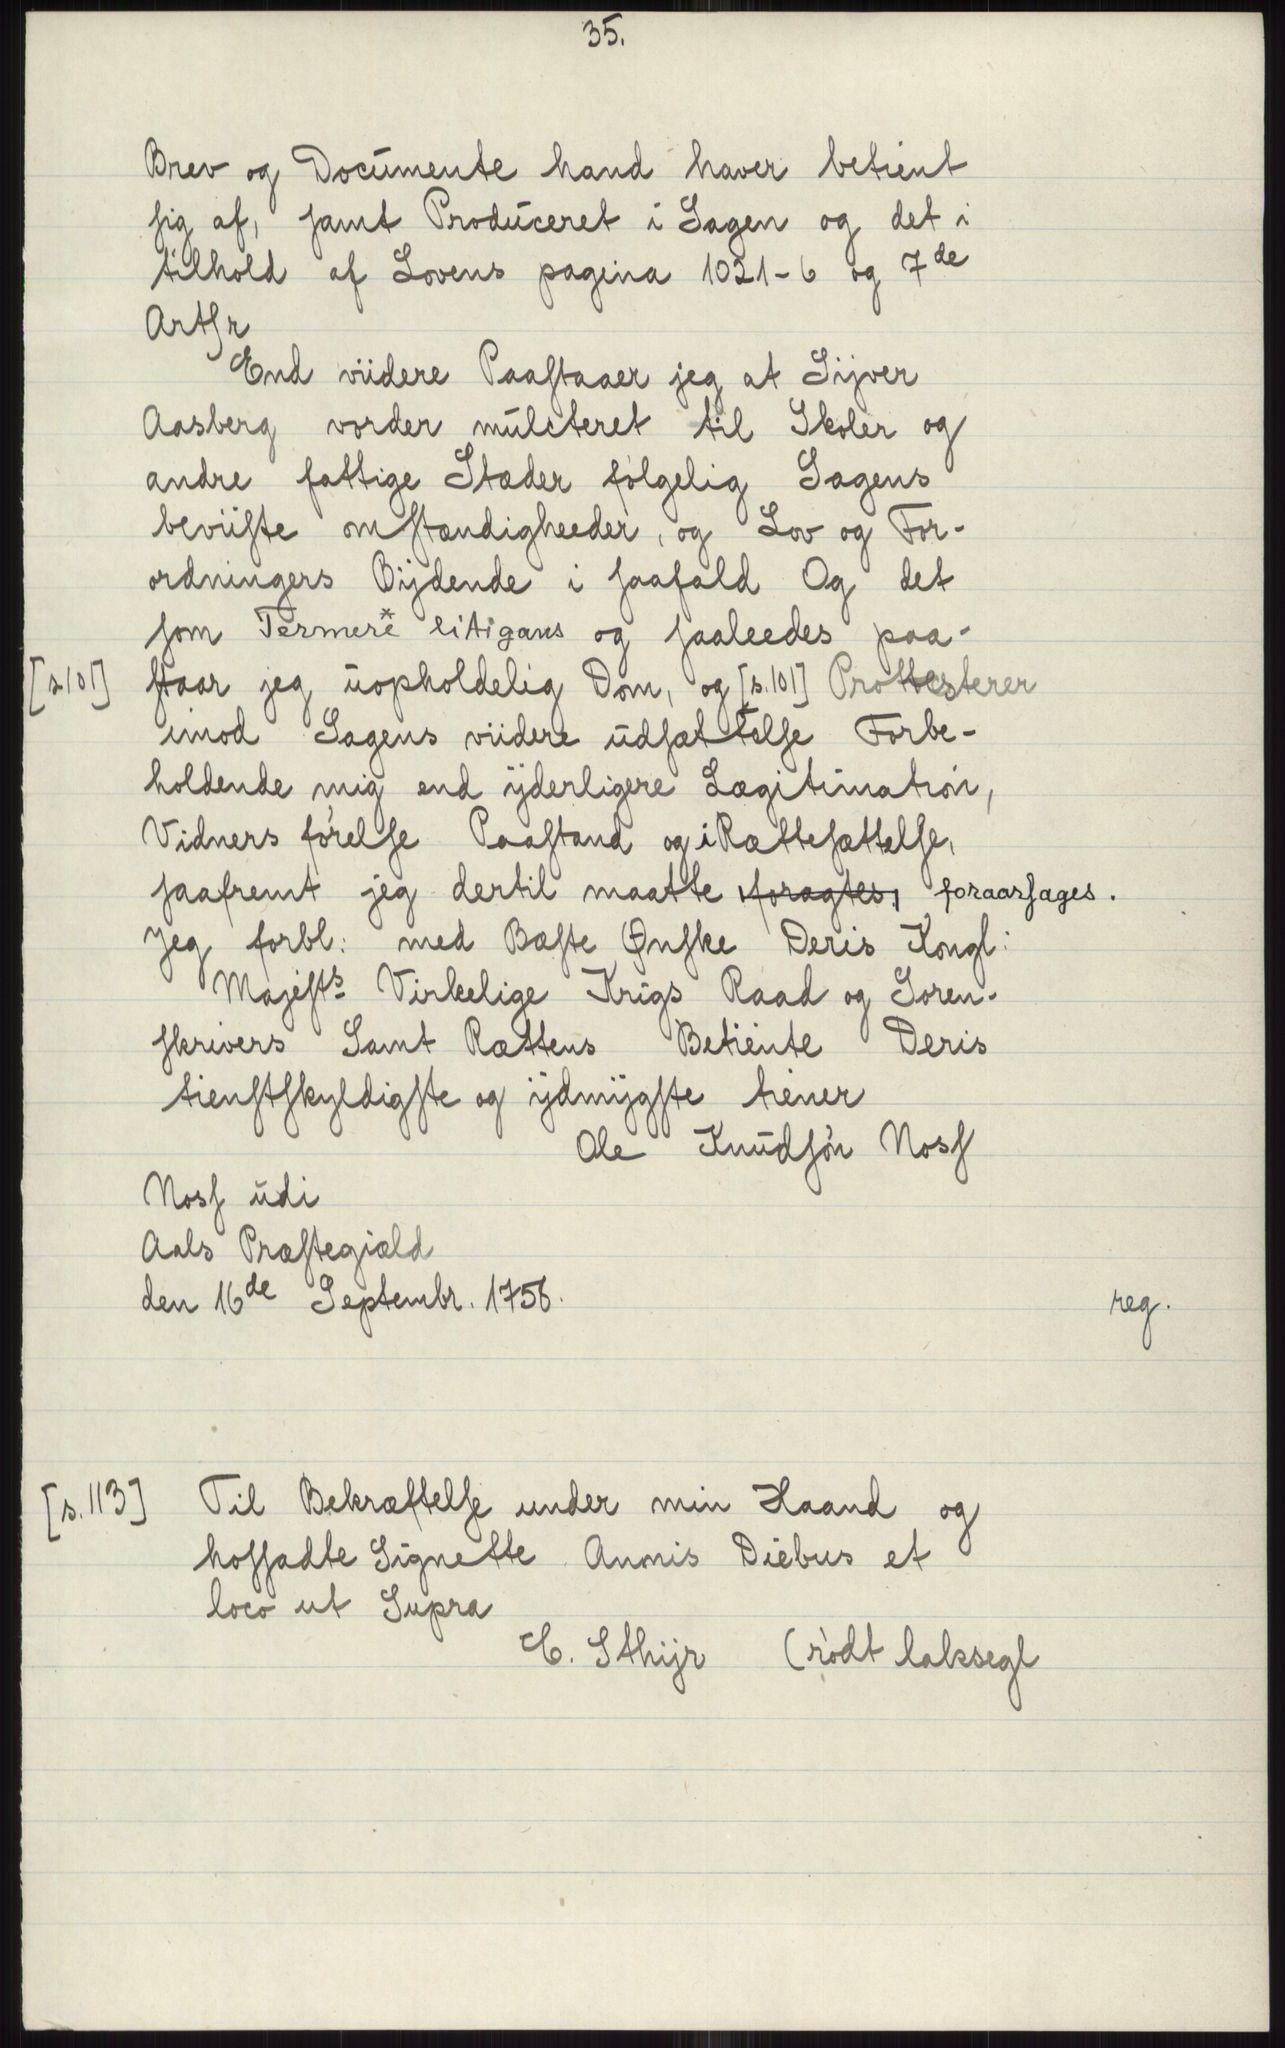 35.
Brev og Documente hand haver betient
sig af, samt Produceret i Sagen og det i
tilhold af Lovens pagina 1021-6 og 7de
Artlr
End viidere Paastaaer jeg at Sijver
Aasberg vorder mulcteret til Skoler og
andre fattige Stæder følgelig Sagens
beviiste omstændigheeder, og Lov og For-
ordningers Bijdende i saafald Og det
som Termere* litigans og saaleedes paa-
[s101] staar jeg uopholdelig Dom, og [s.101] Prottesterer
imod Sagens viidere udsættelse Forbe-
holdende mig end ÿderligere Lægitimation,
Vidners førelse Paastand og iRættesættelse,
saafremt jeg dertil maatte foragtes, foraarsages.
Jeg forbl: med Bæste Ønske Deris Kongl:
Majests Virkelige Krigs Raad og Soren-
skrivers Samt Rættens Betiente Deris
tienstskyldigste og ÿdmÿgste tiener
Ole Knudsøn Noss
Noss udi
Aals Præstegiæld
den 16de Septembr. 1756.
reg.
[s.113] Til Bekræftelse under min Haand og
hossadte Signette Annis Diebus et
loco ut Supra
C. Sthijr (rødt laksegl